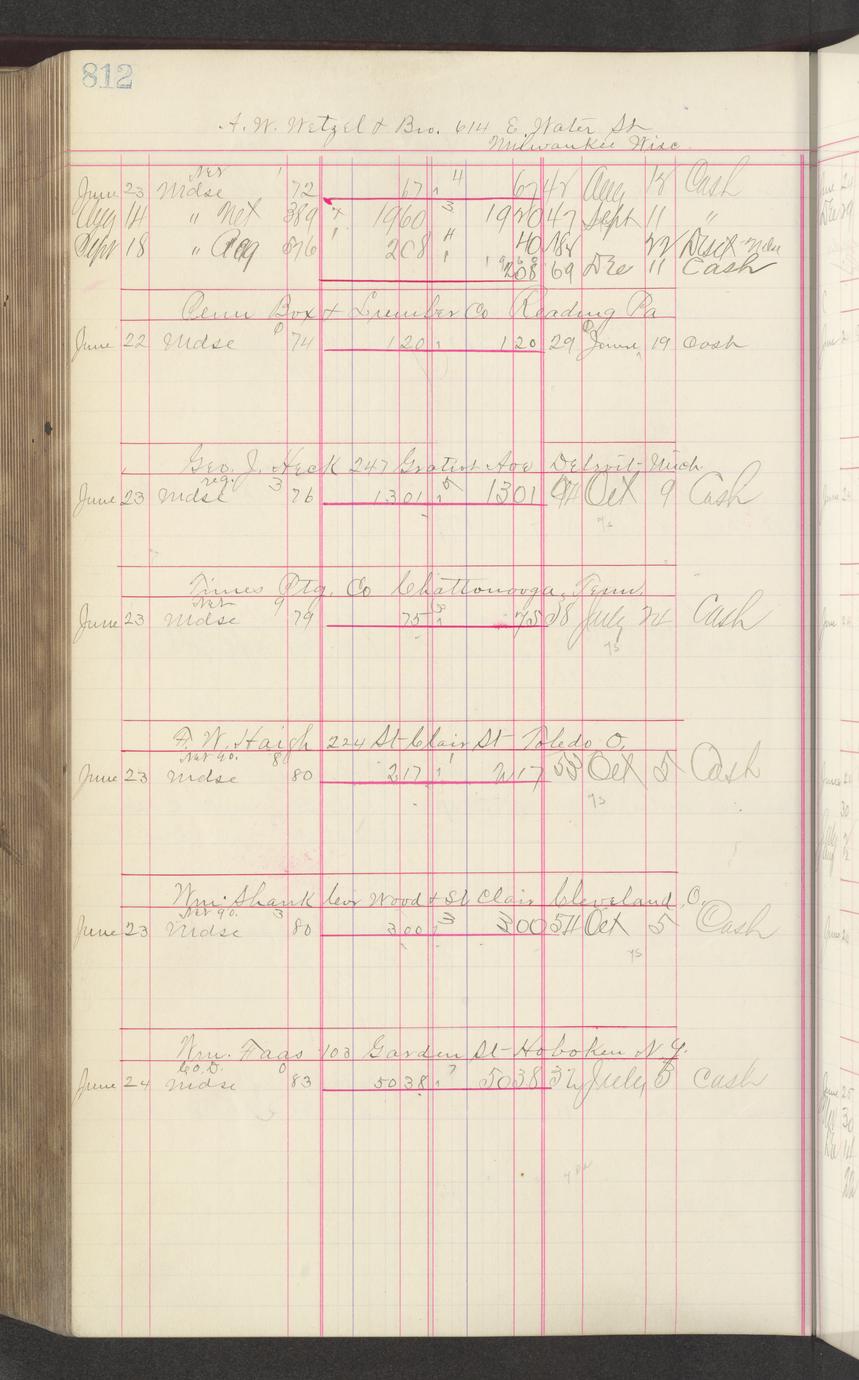 812
A. W. Wetzel & Bro. 614 E. Water St
Milwaukee Wisc.
Net
June 23 Mdse 72 67 4 67 48 Aug 18 Cash
Aug 14 " Net 389 1960 3 1920 47 Sept 11 "
Sept 18 " 576 208 4 40 22 Disct Mdse
208 69 Dec 11 Cash
Penn Box & Lumber Co Reading Pa
June 22 Mdse 74 120 120 29 June 19 Cash
Geo. J. Heck 247 Gratiot Ave Detroit Mich
reg. 3
June 23 Mdse 76 1301 5 1301 Oct 9 Cash
Times Ptg. Co Chattonooga, Tenn.
Net 9
June 23 Mdse 79 75 75 58 July 24 Cash
F. W. Haigh 224 St Clair St Toledo O.
Net 90. 8
June 23 Mdse 80 217 1 217 53 Oct 5 Cash
Wm. Shank Cor Wood & St Clair Cleveland, O.
Net 90. 3
June 23 Mdse 80 300 3 300 54 Oct 5 Cash
Wm. Faas 103 Garden St Hoboken N.Y.
C.O.D. 0
June 24 Mdse 83 5038 7 5038 32 July 3 Cash